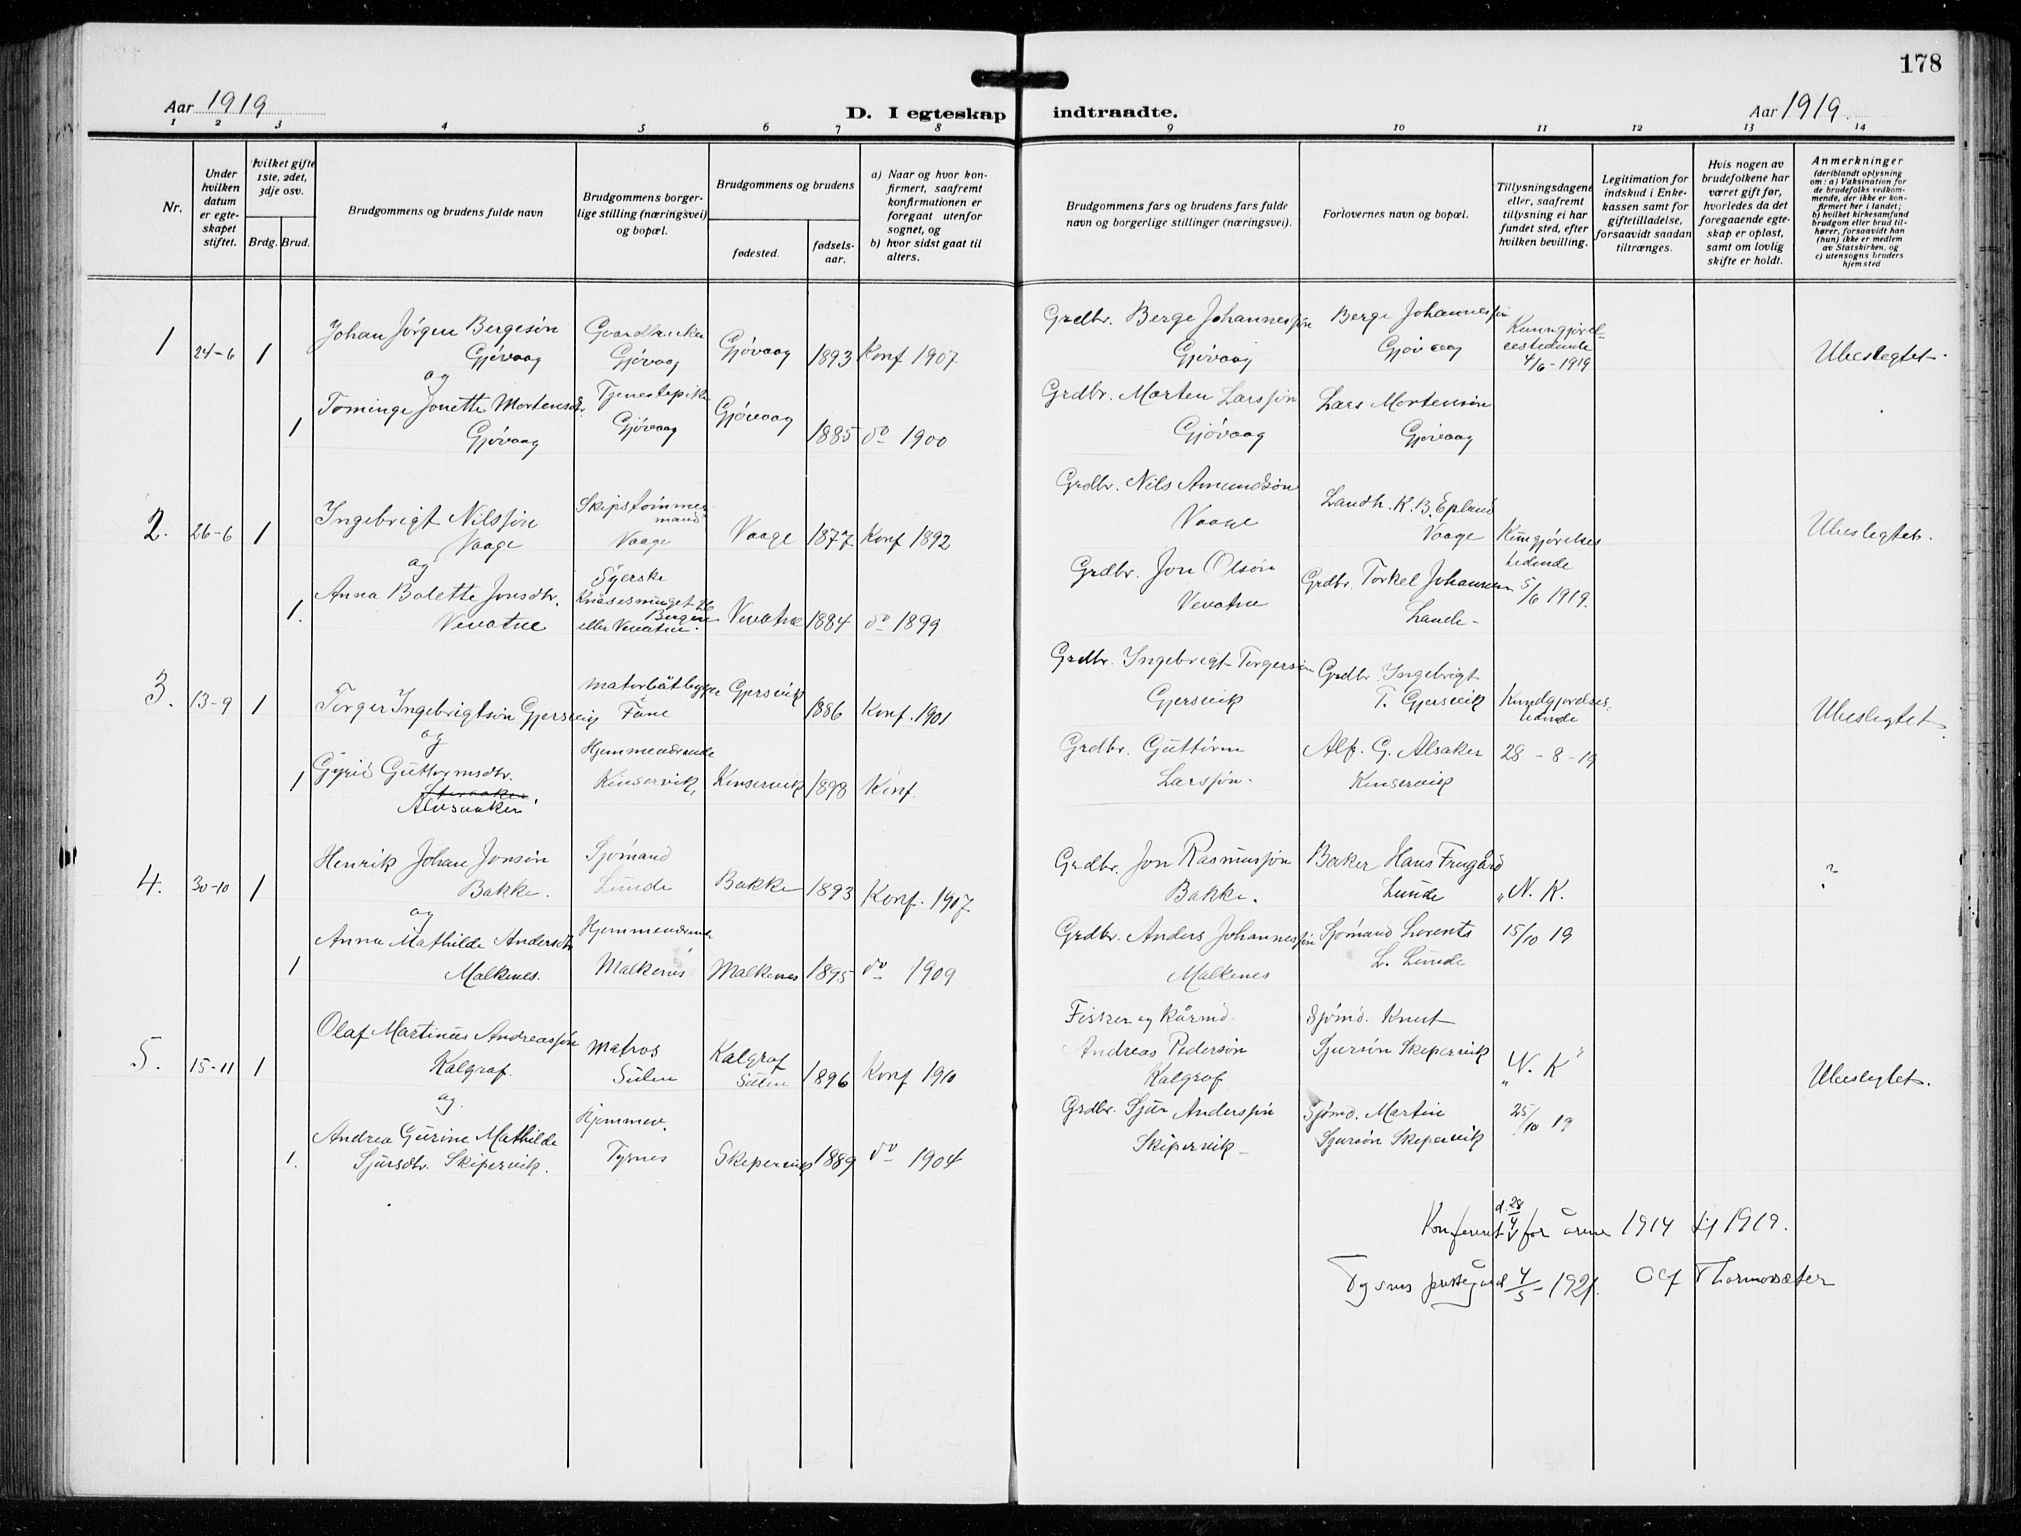 178
Aar 1919
D. I egteskap indtraadte.
Aar 1919
1 2 3 4 5 6 7 8 9 10 11 12 13 14
Nr.
Under hvilken datum er egteskapet stiftet.
Hvilket gifte 1ste, 2det, 3dje osv.
Brdg. Brud.
Brudgommens og brudens fulde navn
Brudgommens borgerlige stilling (næringsvei) og bopæl.
Brudgommens og brudens
fødested.
fødselsaar.
a) Naar og hvor konfirmert, saafremt konfirmationen er foregaat utenfor sognet, og
b) hvor sidst gaat til alters.
Brudgommens fars og brudens fars fulde navn og borgerlige stillinger (næringsvei).
Forlovernes navn og bopæl.
Tillysningsdagene eller, saafremt tillysning ei har fundet sted, efter hvilken bevilling.
Legitimation for indskud i Enkekassen samt for giftetilladelse, forsaavidt saadan tiltrænges.
Hvis nogen av brudefolkene har været gift før, hvorledes da det foregaaende egteskap er opløst, samt om lovlig skifte er holdt.
Anmerkninger
(deriblandt oplysning om: a) Vaksination for de brudefolks vedkommende, der ikke er konfirmert her i landet; b) hvilket kirkesamfund brudgom eller brud tilhører, forsaavidt han (hun) ikke er medlem av Statskirken, og c) utensogns bruders hjemsted
1 24-6 1 Johan Jørgen Bergesøn Gjøvaag
Gaardbruker Gjøvaag Gjøvaag 1893 Konf 1907
Grdbr. Berge Johannessøn Gjøvaag
Berge Johannessøn Gjøvaag
4/6-1919
Ubeslegtet.
og
1 Tominge Jonette Mortensdtr. Gjøvaag
Tjenestepike Gjøvaag Gjøvaag 1885 do 1900
Grdbr. Morten Larssøn Gjøvaag
Lars Mortensøn Gjøvaag
2. 26-6 1 Ingebrigt Nilssøn Vaage
Skipstømmermand Vaage Vaage 1877 Konf 1892
Grdbr. Nils Amundsøn Vaage
Landh. K. B. Epland Vaage
Kungjørelses tidende 5/6 1919.
Ubeslegtet.
og
1. Anna Bolette Jonsdtr. Vevatne
Syerske Bergen eller Vevatne. Vevatne 1884 do 1899
Grdbr. Jon Olsøn Vevatne
Grdbr. Torkel Johannesen Lande
3. 13-9 1 Torger Ingebrigtsøn Gjersvig
Motorbåtbygger Fane Gjersvik 1886 Konf. 1901
Grdbr. Ingebrigt Torgersøn Gjersvik
Grdbr. Ingebrigt T. Gjersvik
Kundgjørelses-tidende 28-8-19
Ubeslegtet.
og
1 Gyrid Guttormsdtr. Alvsaaker
Hjemmeværende Kinservik, Kinservik 1898 Konf.
Grdbr. Guttorm Larssøn.
Alf. G. Alsaker Kinservik
4. 30-10 1 Henrik Johan Jonsøn Bakke.
Sjømand Lunde Bakke 1893 Konf. 1907.
Grdbr. Jon Rasmussøn Bakke.
Baker Hans Frugård Lunde
"N. K. 15/10 19
?
og
1 Anna Mathilde Andersdtr. Malkenes.
Hjemmeværende Malkenes Malkenes 1895 do 1909
Grdbr. Anders Johannessøn Malkenes
Sjømand Lorents L. Lunde
5. 15-11 1 Olaf Martinus Andreassøn Kalgraf.
Matros Sulen Kalgraf Sulen 1896 Konf 1910
Fisker og kårmd. Andreas Pedersøn Kalgraf
Sjømd. Knut Sjursøn Skipervik
"N. K" 25/10 19
Ubeslegtet.
og.
1. Andrea Gurine Mathilde Sjursdtr. Skipervik.
Hjemmev. Tysnes Skipervik 1889 do 1904
Grdbr. Sjur Anderssøn Skipervik
Sjømd. Martin Sjursøn Skipervik
Konferert d. 28/4 for årene 1914 til 1919.
Tysnes prestegård 4/5-1921. Thormodsæter